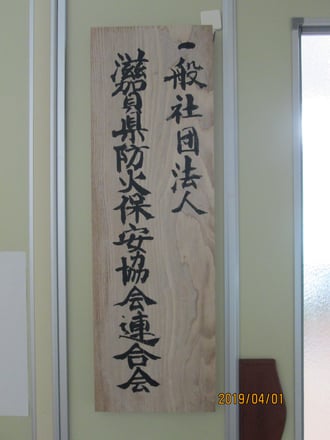 一般社団法人
滋賀県防火保安協会連合会
2019/04/01